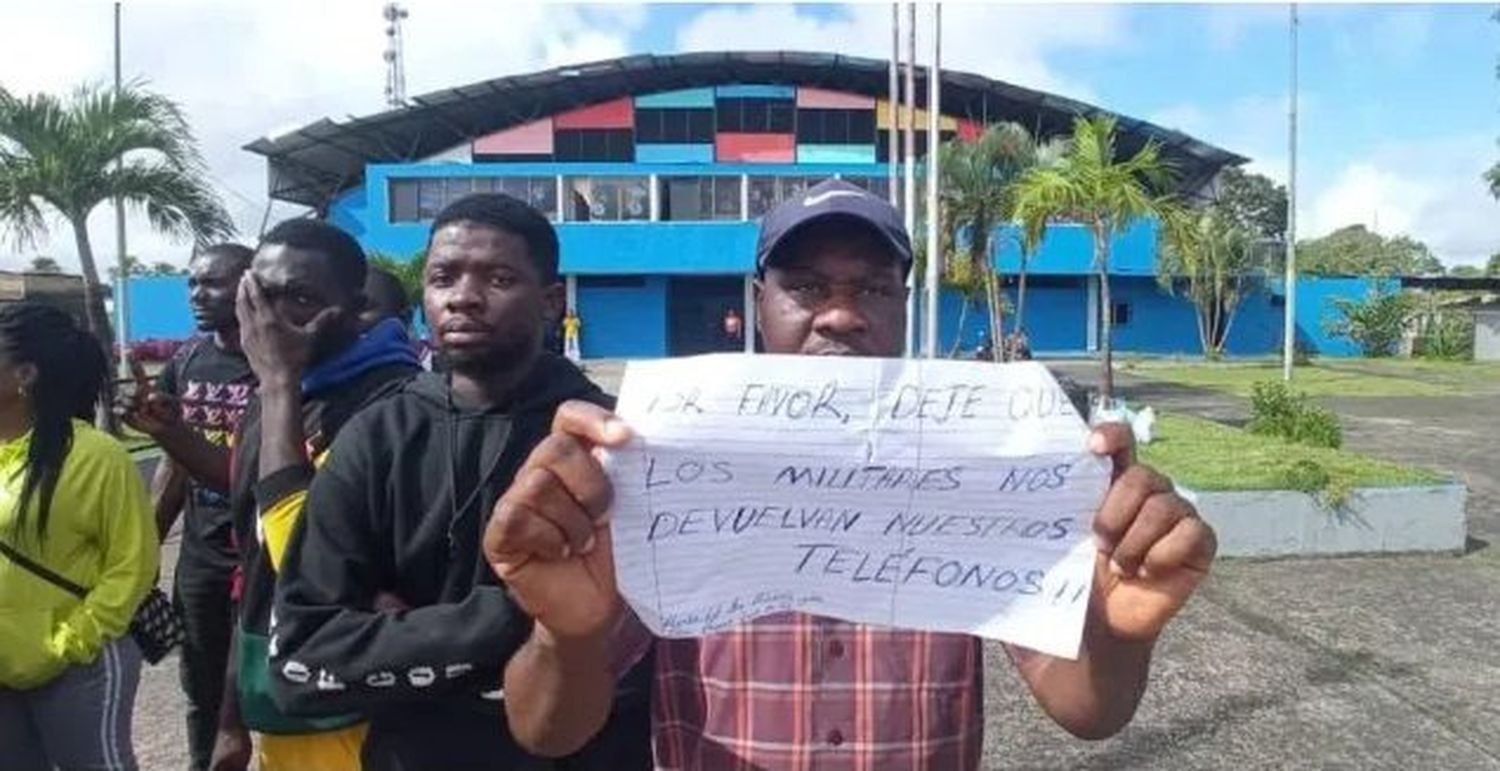 FAVOR, DEJE QUE
LOS MILITARES NOS
DEVUELVAN NUESTROS
TELÉFONOS!!